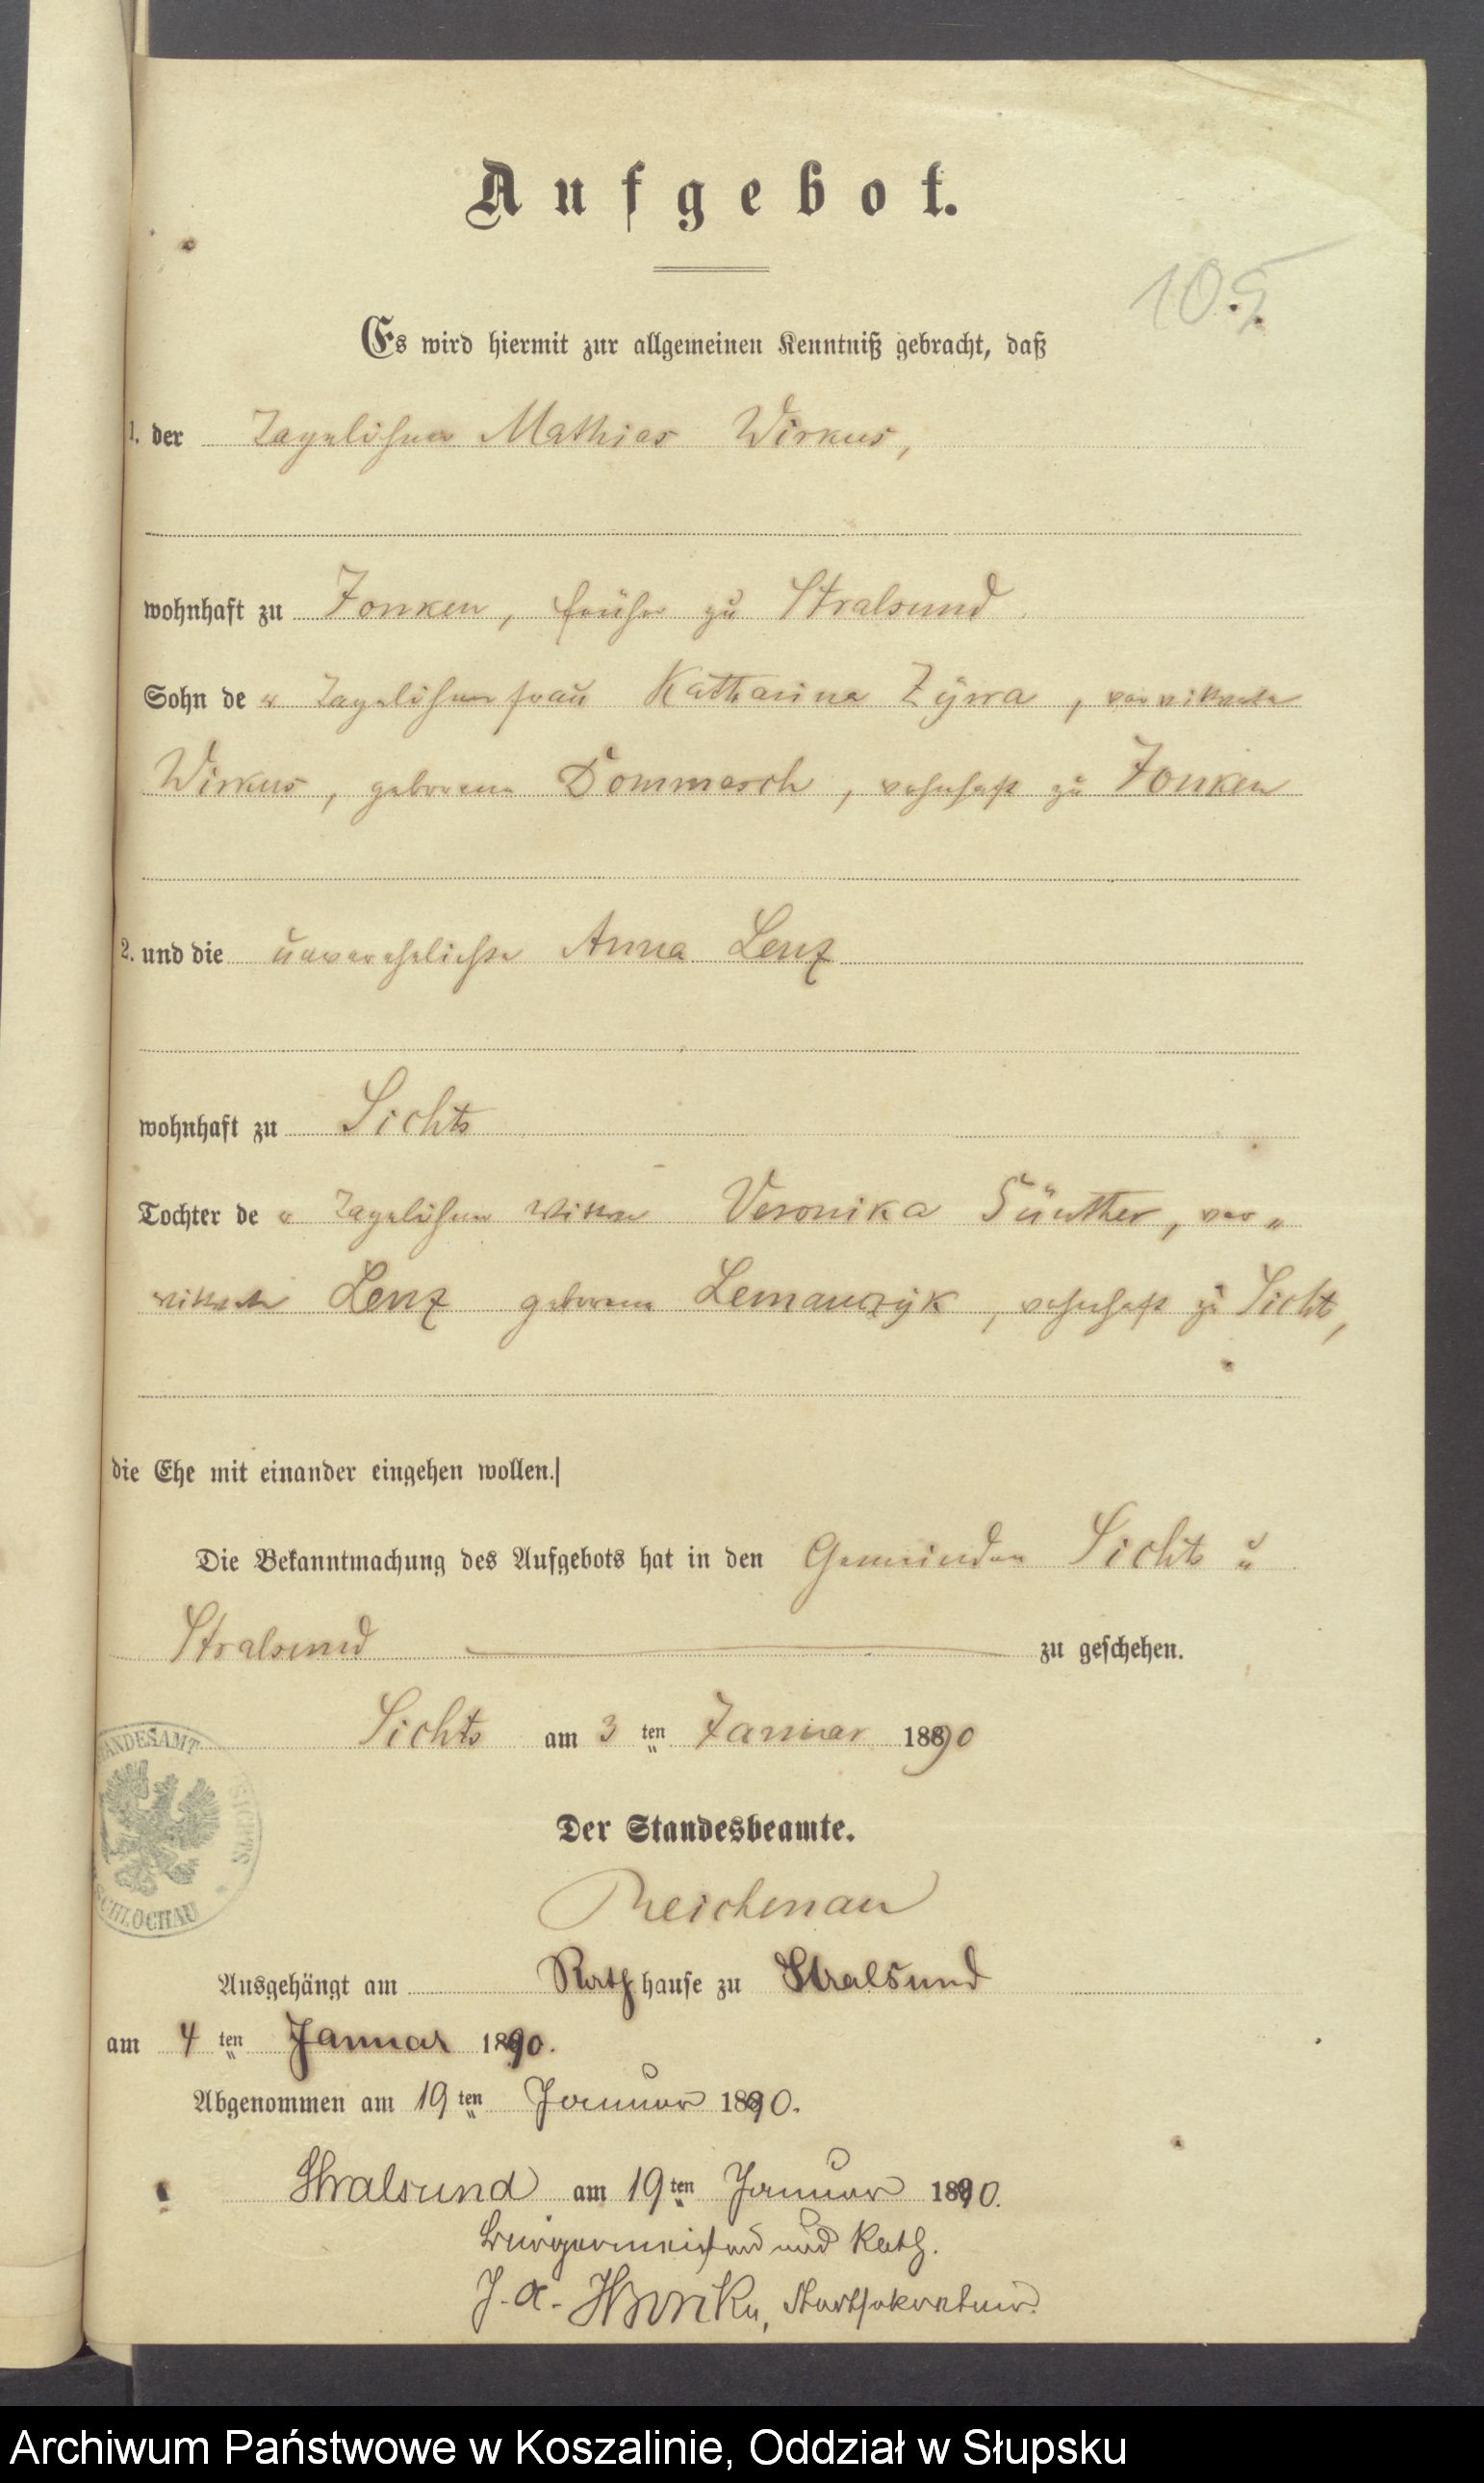 Aufgebot.
105.
Es wird hiermit zur allgemeinen Kenntniß gebracht, daß
1. der Tagelöhner Mathias Wirkus,
wohnhaft zu Jonken, früher zu Stralsund
Sohn der Tagelöhnerfrau Katharina Zywa, verwittwete
Wirkus, geborene Dommasch, wohnhaft zu Jonken
2. und die unverehelichte Anna Lenz
wohnhaft zu Sichts
Tochter der Tagelöhner Wittwe Veronika Günther, ver„
wittwete Lenz geborene Lemanczyk, wohnhaft zu Sichts,
die Ehe mit einander eingehen wollen.
Die Bekanntmachung des Aufgebots hat in den Gemeinden Sichts u
Stralsund zu geschehen.
Sichts am 3ten Januar 1890
STANDESAMT SICHTS
SCHLOCHAU
Der Standesbeamte.
Reichenau
Ausgehängt am Rathhause zu Stralsund
am 4ten Januar 1890.
Abgenommen am 19ten Januar 1890.
Stralsund am 19ten Januar 1890.
Bürgermeister und Rath.
J. A.
Archiwum Państwowe w Koszalinie, Oddział w Słupsku